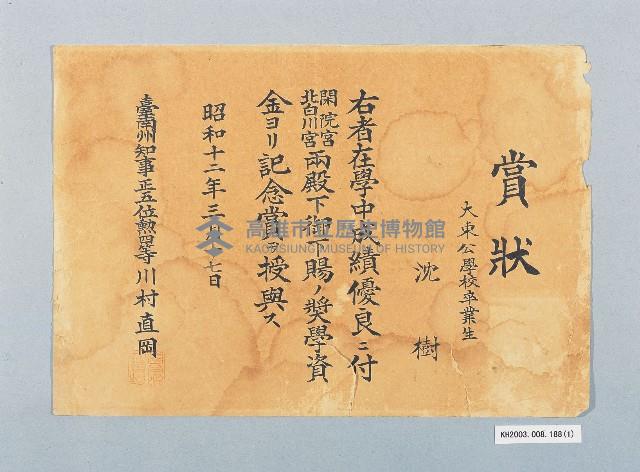 賞狀
大東公學校卒業生
沈樹
右者在學中成績優良ニ付
閑院宮
北白川宮
兩殿下御下賜ノ奬學資
金ヨリ記念賞ヲ授與ス
昭和十二年三月 七日
臺南州知事正五位勲四等川村直岡
高雄市立歷史博物館
KAOHSIUNG MUSEUM OF HISTORY
KH2003.008.188(1)